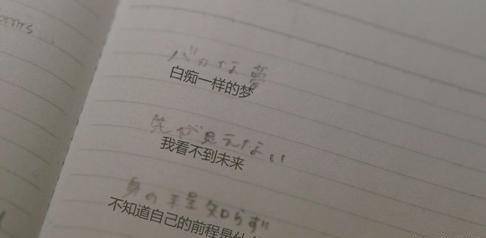 バカな夢
白痴一样的梦
先が見えない
我看不到未来
身の程知らず
不知道自己的前程是什